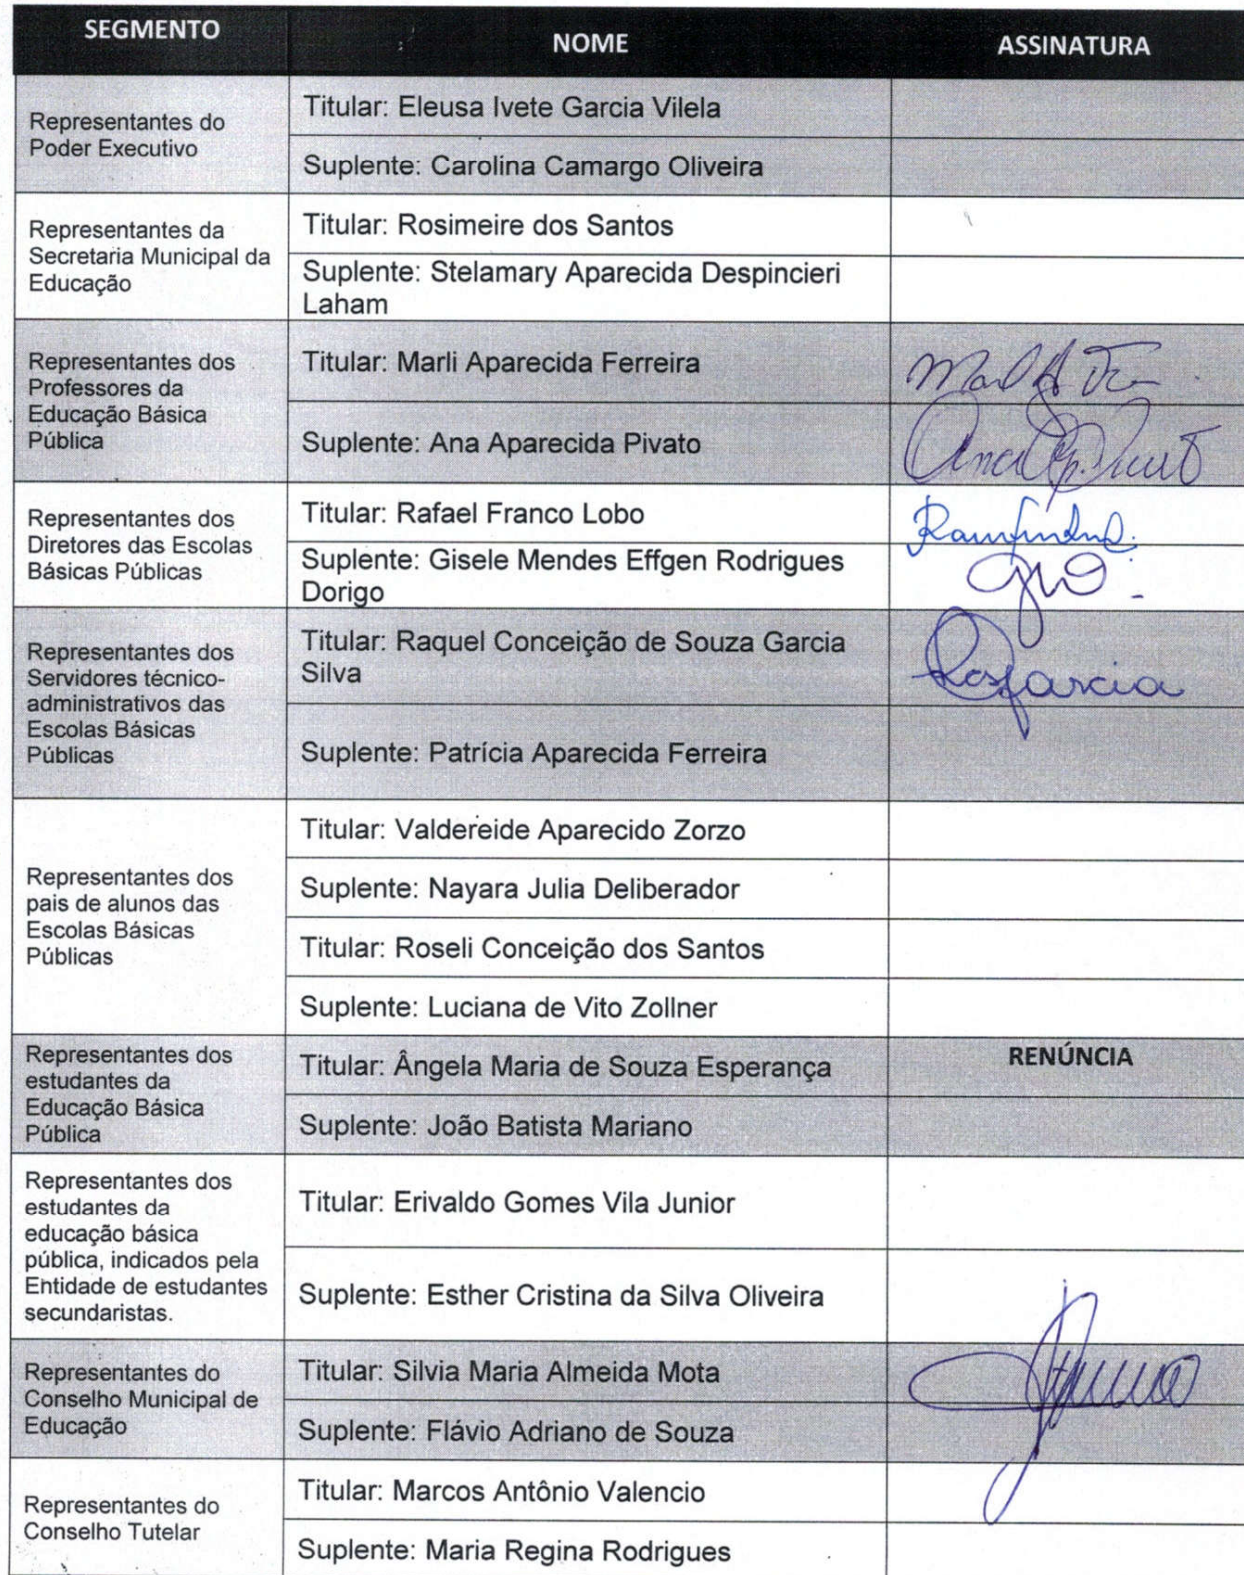 SEGMENTO
NOME
ASSINATURA
Representantes do
Poder Executivo
Titular: Eleusa Ivete Garcia Vilela
Suplente: Carolina Camargo Oliveira
Representantes da
Secretaria Municipal da
Educação
Titular: Rosimeire dos Santos
Suplente: Stelamary Aparecida Despincieri
Laham
Representantes dos
Professores da
Educação Básica
Pública
Titular: Marli Aparecida Ferreira
Suplente: Ana Aparecida Pivato
Representantes dos
Diretores das Escolas
Básicas Públicas
Titular: Rafael Franco Lobo
Suplente: Gisele Mendes Effgen Rodrigues
Dorigo
Representantes dos
Servidores técnico-
administrativos das
Escolas Básicas
Públicas
Titular: Raquel Conceição de Souza Garcia
Silva
Suplente: Patrícia Aparecida Ferreira
Representantes dos
pais de alunos das
Escolas Básicas
Públicas
Titular: Valdereide Aparecido Zorzo
Suplente: Nayara Julia Deliberador
Titular: Roseli Conceição dos Santos
Suplente: Luciana de Vito Zollner
Representantes dos
estudantes da
Educação Básica
Pública
Titular: Ângela Maria de Souza Esperança
RENÚNCIA
Suplente: João Batista Mariano
Representantes dos
estudantes da
educação básica
pública, indicados pela
Entidade de estudantes
secundaristas.
Titular: Erivaldo Gomes Vila Junior
Suplente: Esther Cristina da Silva Oliveira
Representantes do
Conselho Municipal de
Educação
Titular: Silvia Maria Almeida Mota
Suplente: Flávio Adriano de Souza
Representantes do
Conselho Tutelar
Titular: Marcos Antônio Valencio
Suplente: Maria Regina Rodrigues